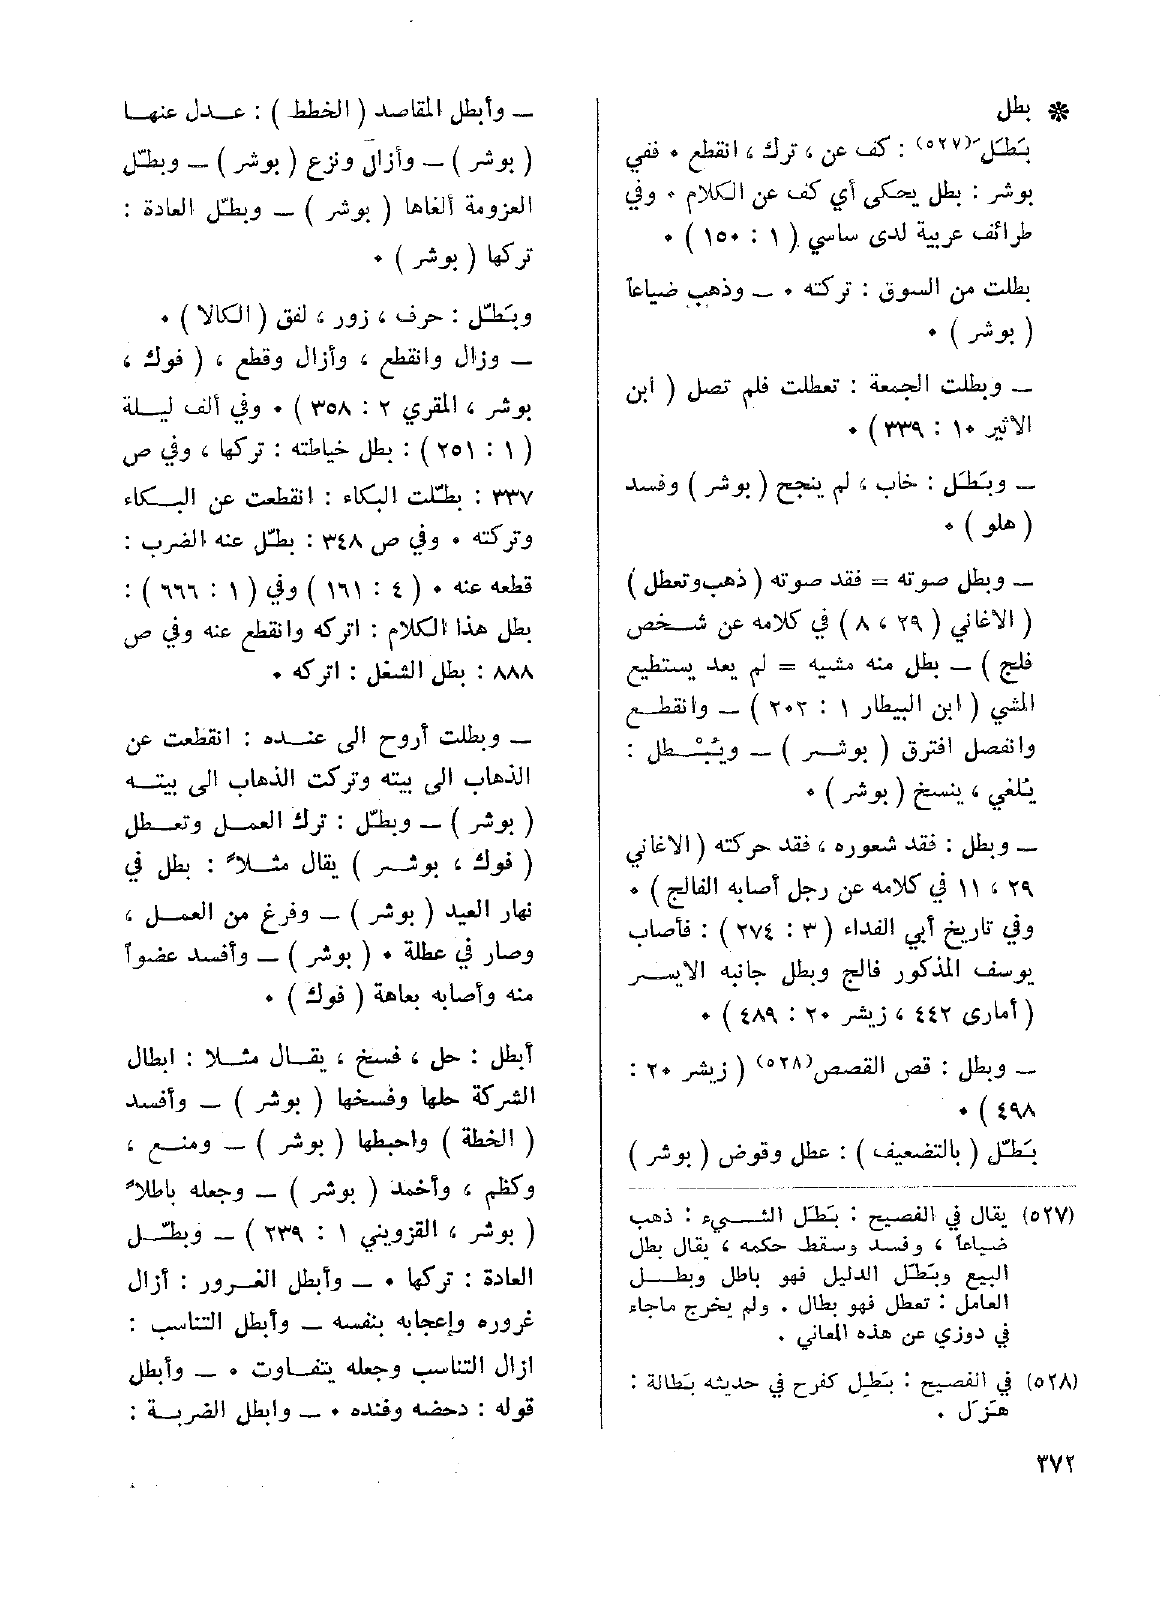 ❊ بطل
بَطَل َ(٥٢٧) : كف عن ، ترك ، انقطع • ففي
بوشر : بطل يحكى أي كف عن الكلام • وفي
طرائف عربية لدى ساسي ( ١ : ١٥٠ ) •
بطلت من السوق : تركته • ــ وذهب ضياعاً
( بوشر ) •
ــ وبطلت الجمعة : تعطلت فلم تصل ( ابن
الاثير ١٠ : ٣٣٩ ) •
ــ وبَطَل : خاب ، لم ينجح ( بوشر ) وفسد
( هلو ) •
ــ وبطل صوته = فقد صوته ( ذهب وتعطل )
( الاغاني ( ٢٩ ، ٨ ) في كلامه عن شخص
فلج ) ــ بطل منه مشيه = لم يعد يستطيع
المشي ( ابن البيطار ١ : ٢٠٢ ) ــ وانقطع
وانفصل افترق ( بوشر ) ــ ويُبْطل :
يُلغي ، ينسخ ( بوشر ) •
ــ وبطل : فقد شعوره ، فقد حركته ( الاغاني
٢٩ ، ١١ في كلامه عن رجل أصابه الفالج ) •
وفي تاريخ أبي الفداء ( ٣ : ٢٧٤ ) : فأصاب
يوسف المذكور فالج وبطل جانبه الايسر
( أماري ٤٤٢ ، زيشر ٢٠ : ٤٨٩ ) •
ــ وبطل : قص القصص(٥٢٨) ( زيشر ٢٠ :
٤٩٨ ) •
بَطَّل ( بالتضعيف ) : عطل وقوض ( بوشر )
(٥٢٧) يقال في الفصيح : بَطَل الشيء : ذهب
ضياعاً ، وفسد وسقط حكمه ، يقال بطل
البيع وبَطَل الدليل فهو باطل وبطل
العامل : تعطل فهو بطال . ولم يخرج ماجاء
في دوزي عن هذه المعاني .
(٥٢٨) في الفصيح : بَطِل كفرح في حديثه بَطالة :
هَزَل .
ــ وأبطل المقاصد ( الخطط ) : عدل عنها
( بوشر ) ــ وأزال ونزع ( بوشر ) ــ وبطّل
العزومة ألغاها ( بوشر ) ــ وبطّل العادة :
تركها ( بوشر ) •
وبَطّل : حرف ، زور ، لفق ( الكالا ) •
ــ وزال وانقطع ، وأزال وقطع ، ( فوك ،
بوشر ، المقري ٢ : ٣٥٨ ) • وفي ألف ليلة
( ١ : ٢٥١ ) : بطل خياطته : تركها ، وفي ص
٣٣٧ : بطّلت البكاء : انقطعت عن البكاء
وتركته • وفي ص ٣٤٨ : بطّل عنه الضرب :
قطعه عنه • ( ٤ : ١٦١ ) وفي ( ١ : ٦٦٦ ) :
بطل هذا الكلام : اتركه وانقطع عنه وفي ص
٨٨٨ : بطل الشغل : اتركه •
ــ وبطلت أروح الى عنده : انقطعت عن
الذهاب الى بيته وتركت الذهاب الى بيته
( بوشر ) ــ وبطّل : ترك العمل وتعطل
( فوك ، بوشر ) يقال مثلاً : بطل في
نهار العيد ( بوشر ) ــ وفرغ من العمل ،
وصار في عطلة • ( بوشر ) ــ وأفسد عضواً
منه وأصابه بعاهة ( فوك ) •
أبطل : حل ، فسخ ، يقال مثلا : ابطال
الشركة حلها وفسخها ( بوشر ) ــ وأفسد
( الخطة ) واحبطها ( بوشر ) ــ ومنع ،
وكظم ، وأخمد ( بوشر ) ــ وجعله باطلاً
( بوشر ، القزويني ١ : ٢٣٩ ) ــ وبطّل
العادة : تركها • ــ وأبطل الغرور : أزال
غروره وإعجابه بنفسه ــ وأبطل التناسب :
ازال التناسب وجعله يتفاوت • ــ وأبطل
قوله : دحضه وفنده • ــ وابطل الضربة :
٣٧٢